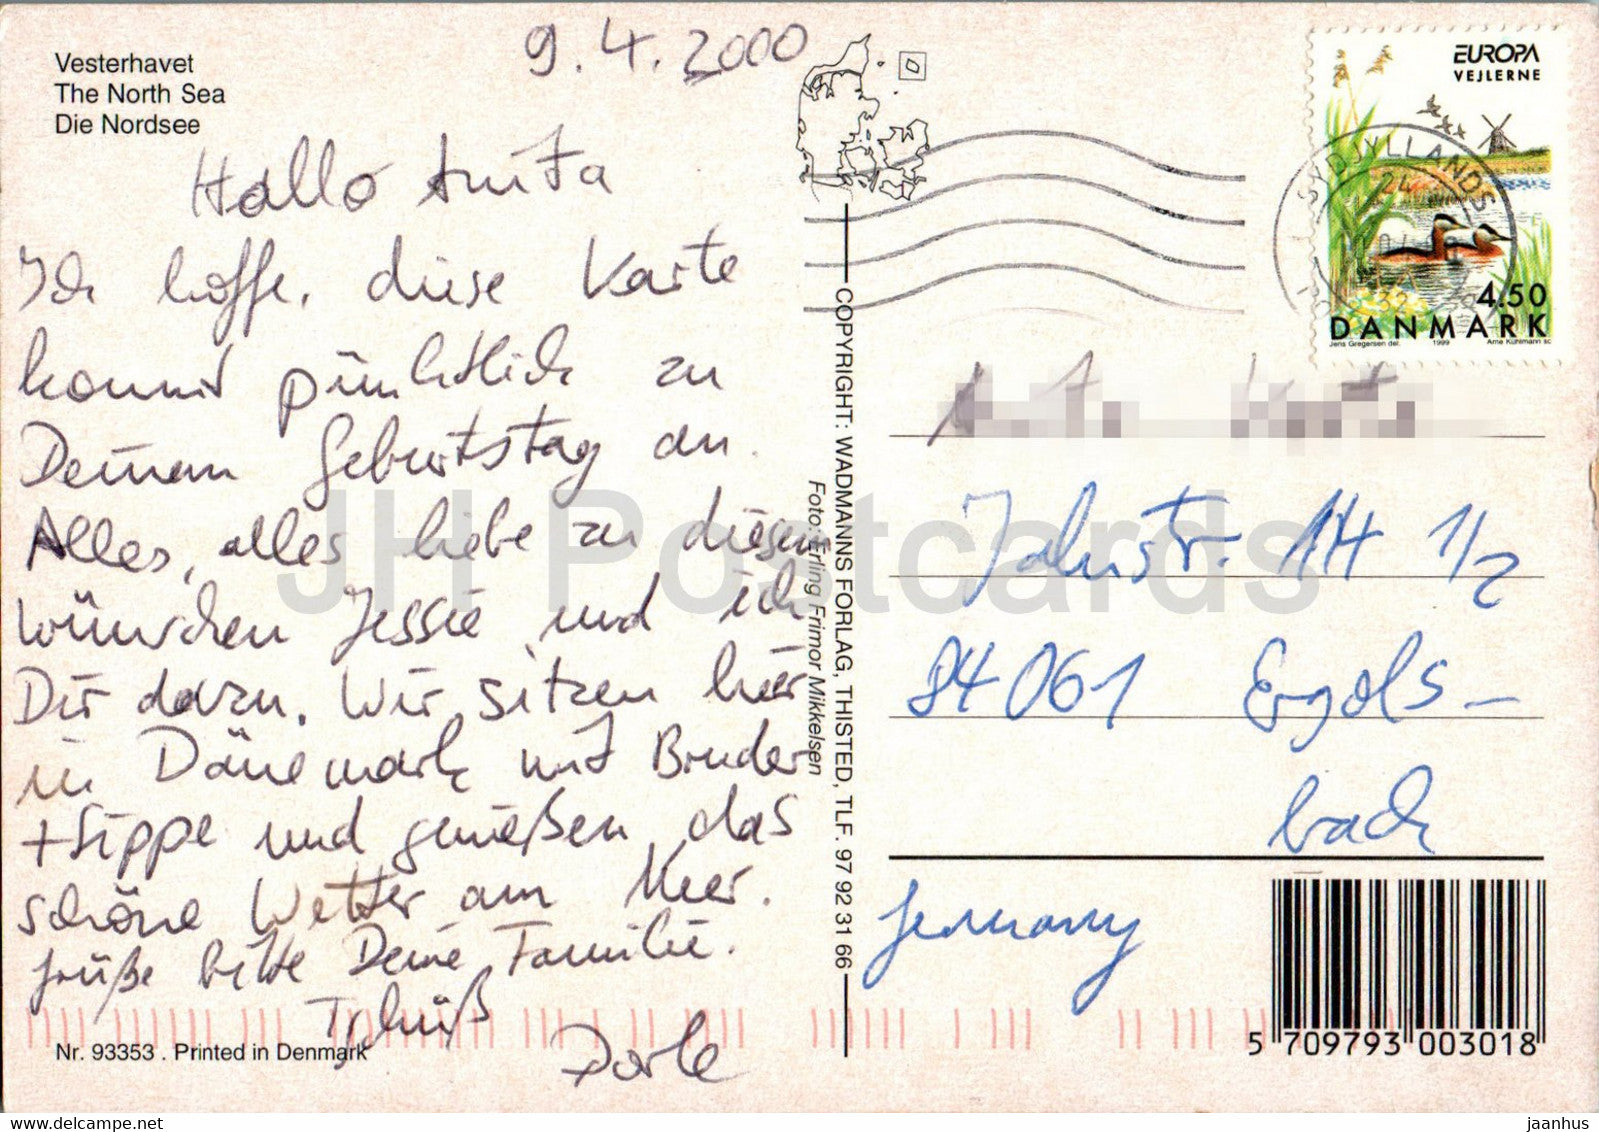 Vesterhavet
The North Sea
Die Nordsee
9.4.2000
Hallo Anita
Ich hoffe, diese Karte
kommt pünktlich zu
Deinem Geburtstag an.
Alles, alles liebe zu diesem
wünschen Jessie und ich
Dir dazu. Wir sitzen hier
in Dänemark mit Bruder
+ Sippe und genießen das
schöne Wetter am Meer.
Grüße bitte Deine Familie.
Tschüß
Dorle
Nr. 93353 . Printed in Denmark
COPYRIGHT: WADMANNS FORLAG, THISTED, TLF. 97 92 31 66
Foto: Erling Frimor Mikkelsen
EUROPA
VEJLERNE
4.50
DANMARK
Jens Gregersen del. 1999 Arne Kühlmann sc
SYDJYLLANDS
24
Jahnstr. 14 1/2
84061 Ergols-
bach
Germany
5 709793 003018
JH Postcards
delcampe.net
jaanhus